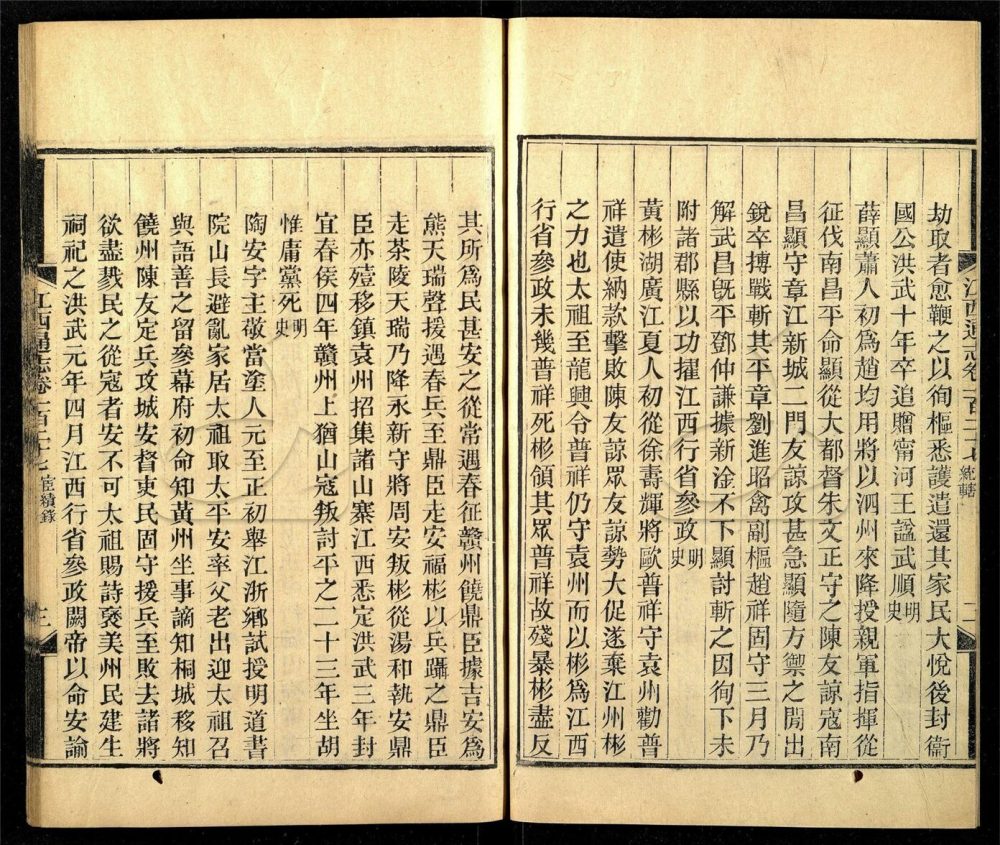 江西通志卷一百二十七 統轄 二
劫取者愈鞭之以徇樞悉護遣還其家民大悅後封衞
國公洪武十年卒追贈甯河王諡武順明史
薛顯蕭人初爲趙均用將以泗州來降授親軍指揮從
征伐南昌平命顯從大都督朱文正守之陳友諒寇南
昌顯守章江新城二門友諒攻甚急顯隨方禦之閒出
銳卒搏戰斬其平章劉進昭禽副樞趙祥固守三月乃
解武昌旣平鄧仲謙據新淦不下顯討斬之因徇下未
附諸郡縣以功擢江西行省參政明史
黃彬湖廣江夏人初從徐壽輝將歐普祥守袁州勸普
祥遣使納款擊敗陳友諒眾友諒勢大促遂棄江州彬
之力也太祖至龍興令普祥仍守袁州而以彬爲江西
行省參政未幾普祥死彬領其眾普祥故殘暴彬盡反
其所爲民甚安之從常遇春征贛州饒鼎臣據吉安爲
熊天瑞聲援遇春兵至鼎臣走安福彬以兵躡之鼎臣
走茶陵天瑞乃降永新守將周安叛彬從湯和執安鼎
臣亦殪移鎮袁州招集諸山寨江西悉定洪武三年封
宜春侯四年贛州上猶山寇叛討平之二十三年坐胡
惟庸黨死明史
陶安字主敬當塗人元至正初舉江浙鄉試授明道書
院山長避亂家居太祖取太平安率父老出迎太祖召
與語善之留參幕府初命知黃州坐事謫知桐城移知
饒州陳友定兵攻城安督吏民固守援兵至敗去諸將
欲盡戮民之從寇者安不可太祖賜詩褒美州民建生
祠祀之洪武元年四月江西行省參政闕帝以命安諭
江西通志卷一百二十七 宦績錄 三